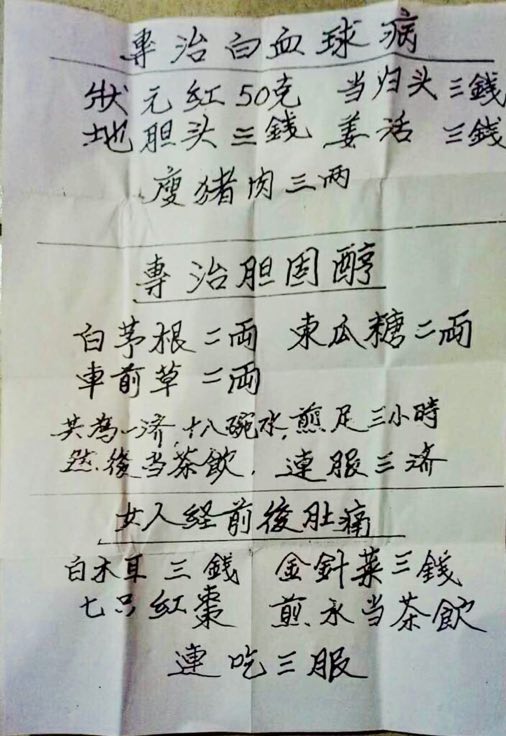 專治白血球病
狀元紅50克 当归头三錢
地胆头三錢 姜活 三錢
瘦猪肉三两
專治胆固醇
白茅根二両 東瓜糖二両
車前草二両
共為一済,十八碗水,煎足三小時
然後当茶飲,連服三済
女人経前後肚痛
白木耳三錢 金針菜三錢
七只紅棗 煎水当茶飲
連吃三服